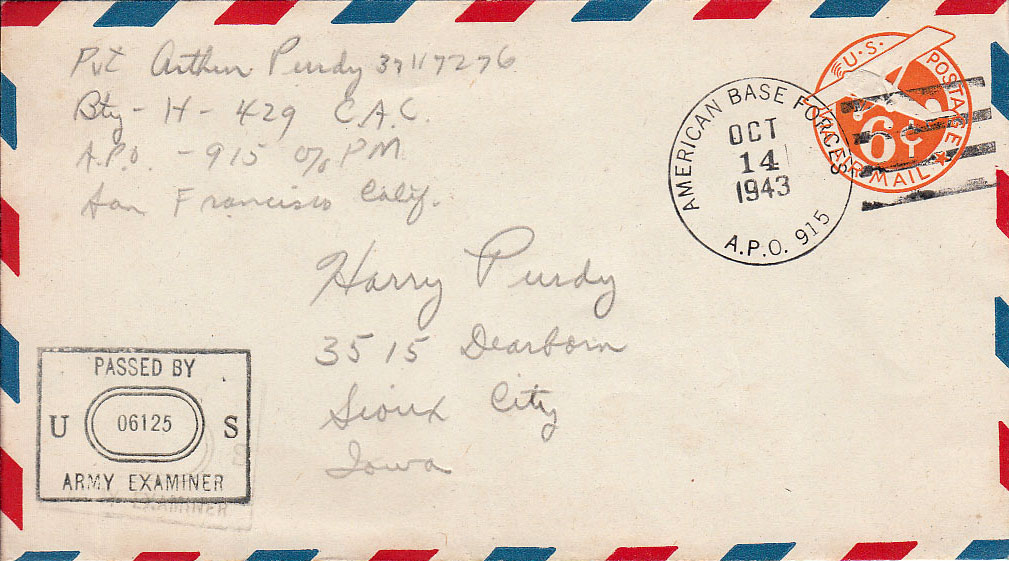 Pvt Arthur Purdy 37117276
Bty - H - 429 C.A.C.
A.P.O. - 915 c/o PM
San Francisco Calif.
AMERICAN BASE FORCES
OCT
14
1943
A.P.O. 915
U.S. POSTAGE
6¢
VIA AIR MAIL
Harry Purdy
3515 Dearborn
Sioux City
Iowa
PASSED BY
U 06125 S
ARMY EXAMINER
S
EXAMINER